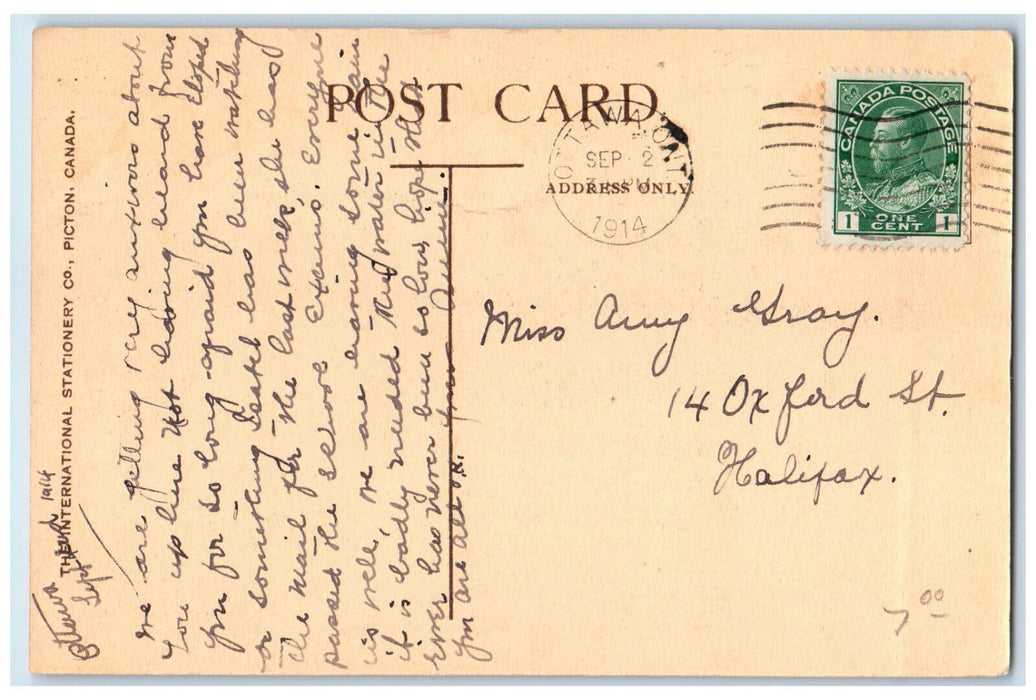 POST CARD
ADDRESS ONLY.
OTTAWA, ONT
SEP 2
PM
1914
CANADA POSTAGE
1 ONE CENT 1
Miss Amy Gray.
14 Oxford St.
Halifax.
7 00
THE INTERNATIONAL STATIONERY CO., PICTON, CANADA.
Ottawa
Sept 2nd 1914
We are getting very anxious about
you up here Not having heard from
you for so long afraid you have eloped
or something Isabel has been watching
the mail for the last week, she has
passed the school Exams. Everyone
is well, we are having some rain
it is badly needed the water in the
river has never been so low, hope
you are all